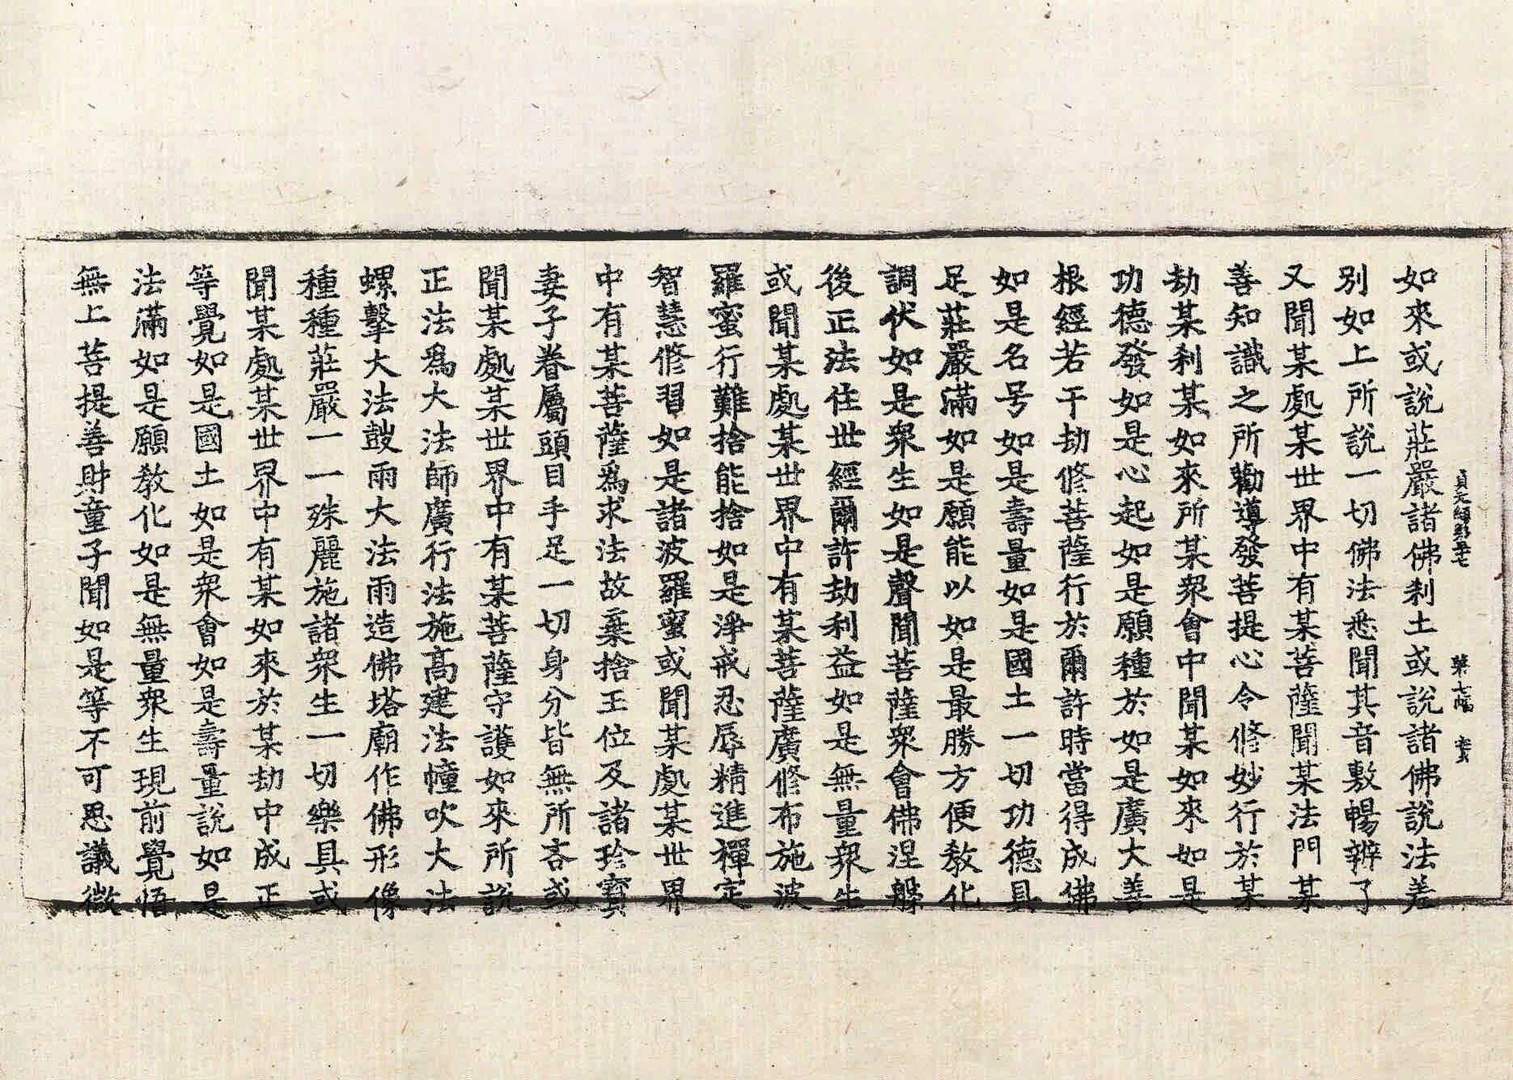 貞元經 第七張 实
如來或說莊嚴諸佛刹土或說諸佛說法差
別如上所說一切佛法悉聞其音敷暢辨了
又聞某處某世界中有某菩薩聞某法門某
善知識之所勸導發菩提心令修妙行於某
劫某刹某如來所某衆會中聞某如來如是
功德發如是心起如是願種於如是廣大善
根經若干劫修菩薩行於爾許時當得成佛
如是名号如是壽量如是國土一切功德具
足莊嚴滿如是願能以如是最勝方便敎化
調伏如是衆生如是聲聞菩薩衆會佛涅槃
後正法住世經爾許劫利益如是無量衆生
或聞某處某世界中有某菩薩廣修布施波
羅蜜行難捨能捨如是淨戒忍辱精進禪定
智慧修習如是諸波羅蜜或聞某處某世界
中有某菩薩爲求法故棄捨王位及諸珍寶
妻子眷屬頭目手足一切身分皆無所吝或
聞某處某世界中有某菩薩守護如來所說
正法爲大法師廣行法施高建法幢吹大法
螺擊大法鼓雨大法雨造佛塔廟作佛形像
種種莊嚴一一殊麗施諸衆生一切樂具或
聞某處某世界中有某如來於某劫中成正
等覺如是國土如是衆會如是壽量說如是
法滿如是願敎化如是無量衆生現前覺悟
無上菩提善財童子聞如是等不可思議微